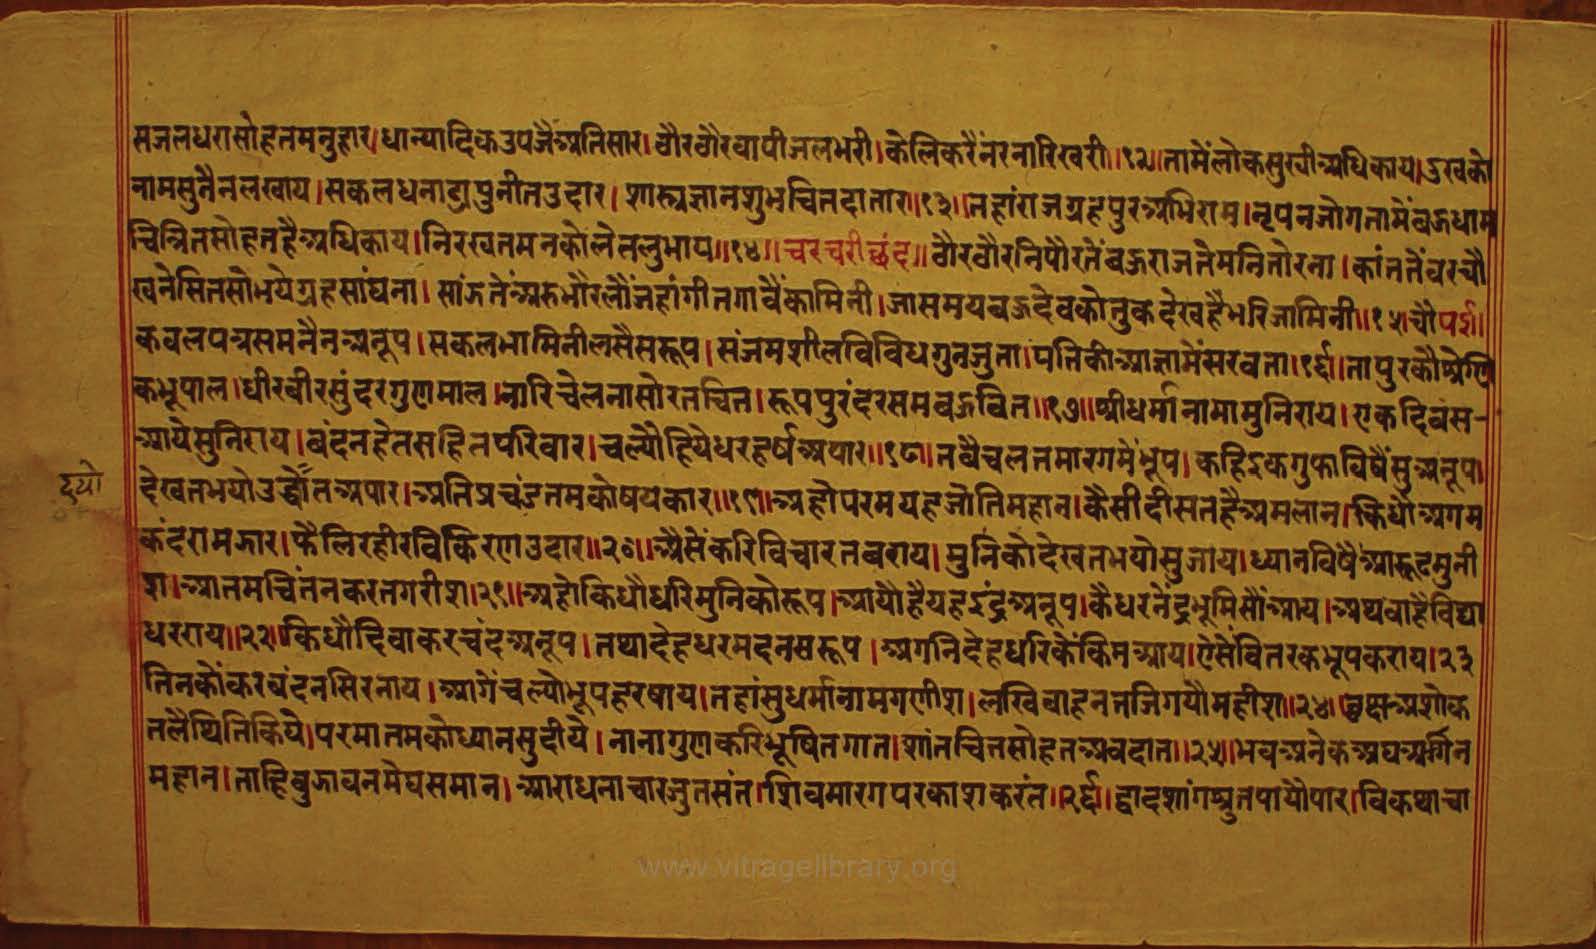 सजलधरासोहतमनुहार।धान्यादिकउपजैंअतिसार।ठौरठौरवापीजलभरी।केलिकरैंनरनारिखरी॥१२॥तामेंलोकसुखीअधिकाय।दुखको
नामसुनैनलखाय।सकलधनाढ्यपुनीतउदार।शास्त्रज्ञानशुभचितदातार॥१३॥तहांराजग्रहपुरअभिराम।नृपनजोगतामेंबहुधाम
चित्रितसोहतहैअधिकाय।निरखतमनकोलेतलुभाय॥१४॥चरचरीछंद॥ठौरठौरनिपौरतेंबहुराजतेमनितोरना।कांनतेंवरचौ
खनेसितसोभयेग्रहसांघना।सांजतेंअरुभौरलौंजहांगीतगावैंकामिनी।जासमयबहुदेवकोतुकदेखहैभरिजामिनी॥१५॥चौपई॥
कवलपत्रसमनैनअनूप।सकलभामिनीलसैसरूप।संजमशीलविविधगुनजुता।पतिकीआज्ञामेंसरवता॥१६॥तापुरकौश्रेणि
कभूपाल।धीरवीरसुंदरगुणमाल।नारिचेलनासोरतचित।रूपपुरंदरसमबहुवित॥१७॥श्रीधर्मानामामुनिराय।एकदिवस-
आयेसुनिराय।वंदनहेतसहितपरिवार।चल्यौहियेधरहर्षअपार॥१८॥नवैचलतमारगमेंभूप।कहिइकगुफाविषैंसुअनूप।
देखतभयोउद्योतअपार।अतिप्रचंडतमकोषयकार॥१९॥अहोपरमयहजोतिमहान।कैसीदीसतहैअमलान।किधोंअगम
द्यो
कंदरामझार।फैलिरहीरविकिरणउदार॥२०॥अैसेंकरिविचारतबराय।मुनिकोदेखतभयोसुजाय।ध्यानविषैंआरूढमुनी
श।आतमचिंतनकरतगरीश।२१॥अहोकिधौधरिमुनिकोरूप।आयौहैयहइंद्रअनूप।कैधरनेंद्रभूमिसौंआय।अथवाहैविद्या
धरराय॥२२॥किधौदिवाकरचंदअनूप।तथादेहधरमदनसरूप।अगनिदेहधरिकेंकिमआय।ऐसेंवितरकभूपकराय।२३
तिनकोंकरवंदनसिरनाय।आगेंचल्योभूपहरषाय।तहांसुधर्मानामगणीश।लखिवाहनतजिगयौमहीश॥२४॥वृक्षअशोक
तलैथितिकिये।परमातमकोध्यानसुदीये।नानागुणकरिभूषितगात।शांतचितसोहतअवदात॥२५॥भवअनेकअघअर्गिन
महान।ताहिबुझावनमेघसमान।आराधनाचारजुतसंत।शिवमारगपरकाशकरंत॥२६॥द्वादशांगश्रुतपायौपार।विकथाचा
www.vitragelibrary.org